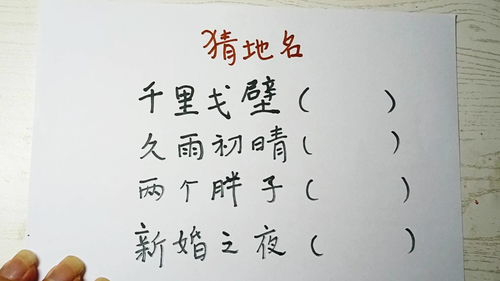 猜地名
千里戈壁（ ）
久雨初晴（ ）
两个胖子（ ）
新婚之夜（ ）